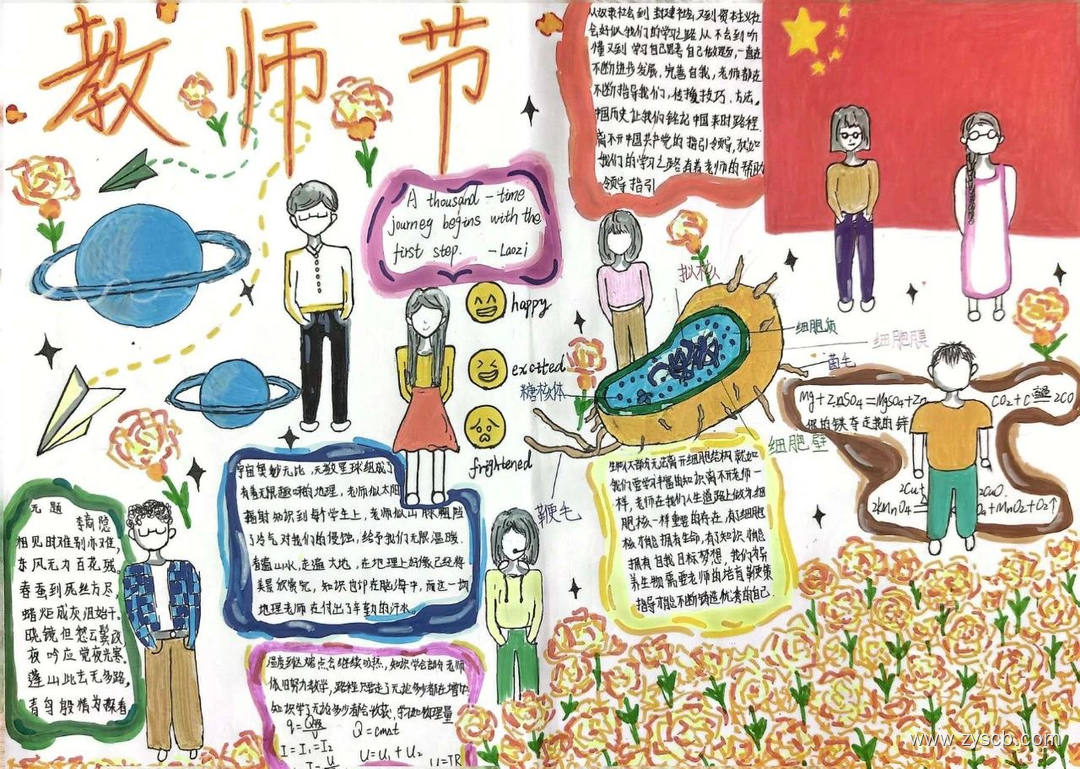 教师节
从奴隶社会到封建社会又到资本主义社
会好似我们的学习之路从不会到听
懂又到学习自己思考自己做理解,一直在
不断进步发展,完善自我,老师都在
不断指导我们,传授技巧、方法。
中国历史让我们铭记中国来时路程
离不开中国共产党的指引领导,犹如
我们的学习之路有着老师的帮助
领导指引
A thousand-time
journey begins with the
first step. -Laozi
happy
excited
frightened
拟核
细胞质
细胞膜
菌毛
糖核体
细胞壁
鞭毛
Mg+ZnSO4=MgSO4+Zn
CO2+C 2CO
2KMnO4 +MnO2+O2↑
宇宙奥妙无比,无数星球组成了
有着无限趣味的地理,老师似太阳
辐射知识到每个学生上,老师似山脉阻挡
了冷气对我们的侵蚀,给予我们无限温暖.
看遍山水,走遍大地,在地理上好像已经将
美景欣赏完,知识也印在脑海中,而这一切
地理老师在付出了辛勤的汗水。
生物都无法离开细胞结构,就如
我们要学习丰富的知识离不开老师一
样,老师在我们人生道路上做为细
胞核一样重要的存在,有细胞
核才能拥有生命,有知识才能
拥有自我目标梦想,我们培
养生物需要老师的培育鞭策
指导才能不断铸造优秀的自己.
无题
李商隐
相见时难别亦难,
东风无力百花残。
春蚕到死丝方尽,
蜡炬成灰泪始干。
晓镜但愁云鬓改
夜吟应觉月光寒.
蓬山此去无多路,
青鸟殷勤为探看
温度到达沸点会继续吸热,知识学会部分老师
依旧努力教学,路程只留走了无论多少都在增加
知识学了无论多少都会收获,学记如物理量
Q=cmΔt
I=I1=I2
U=U1+U2
U=IR
www.zyscb.com